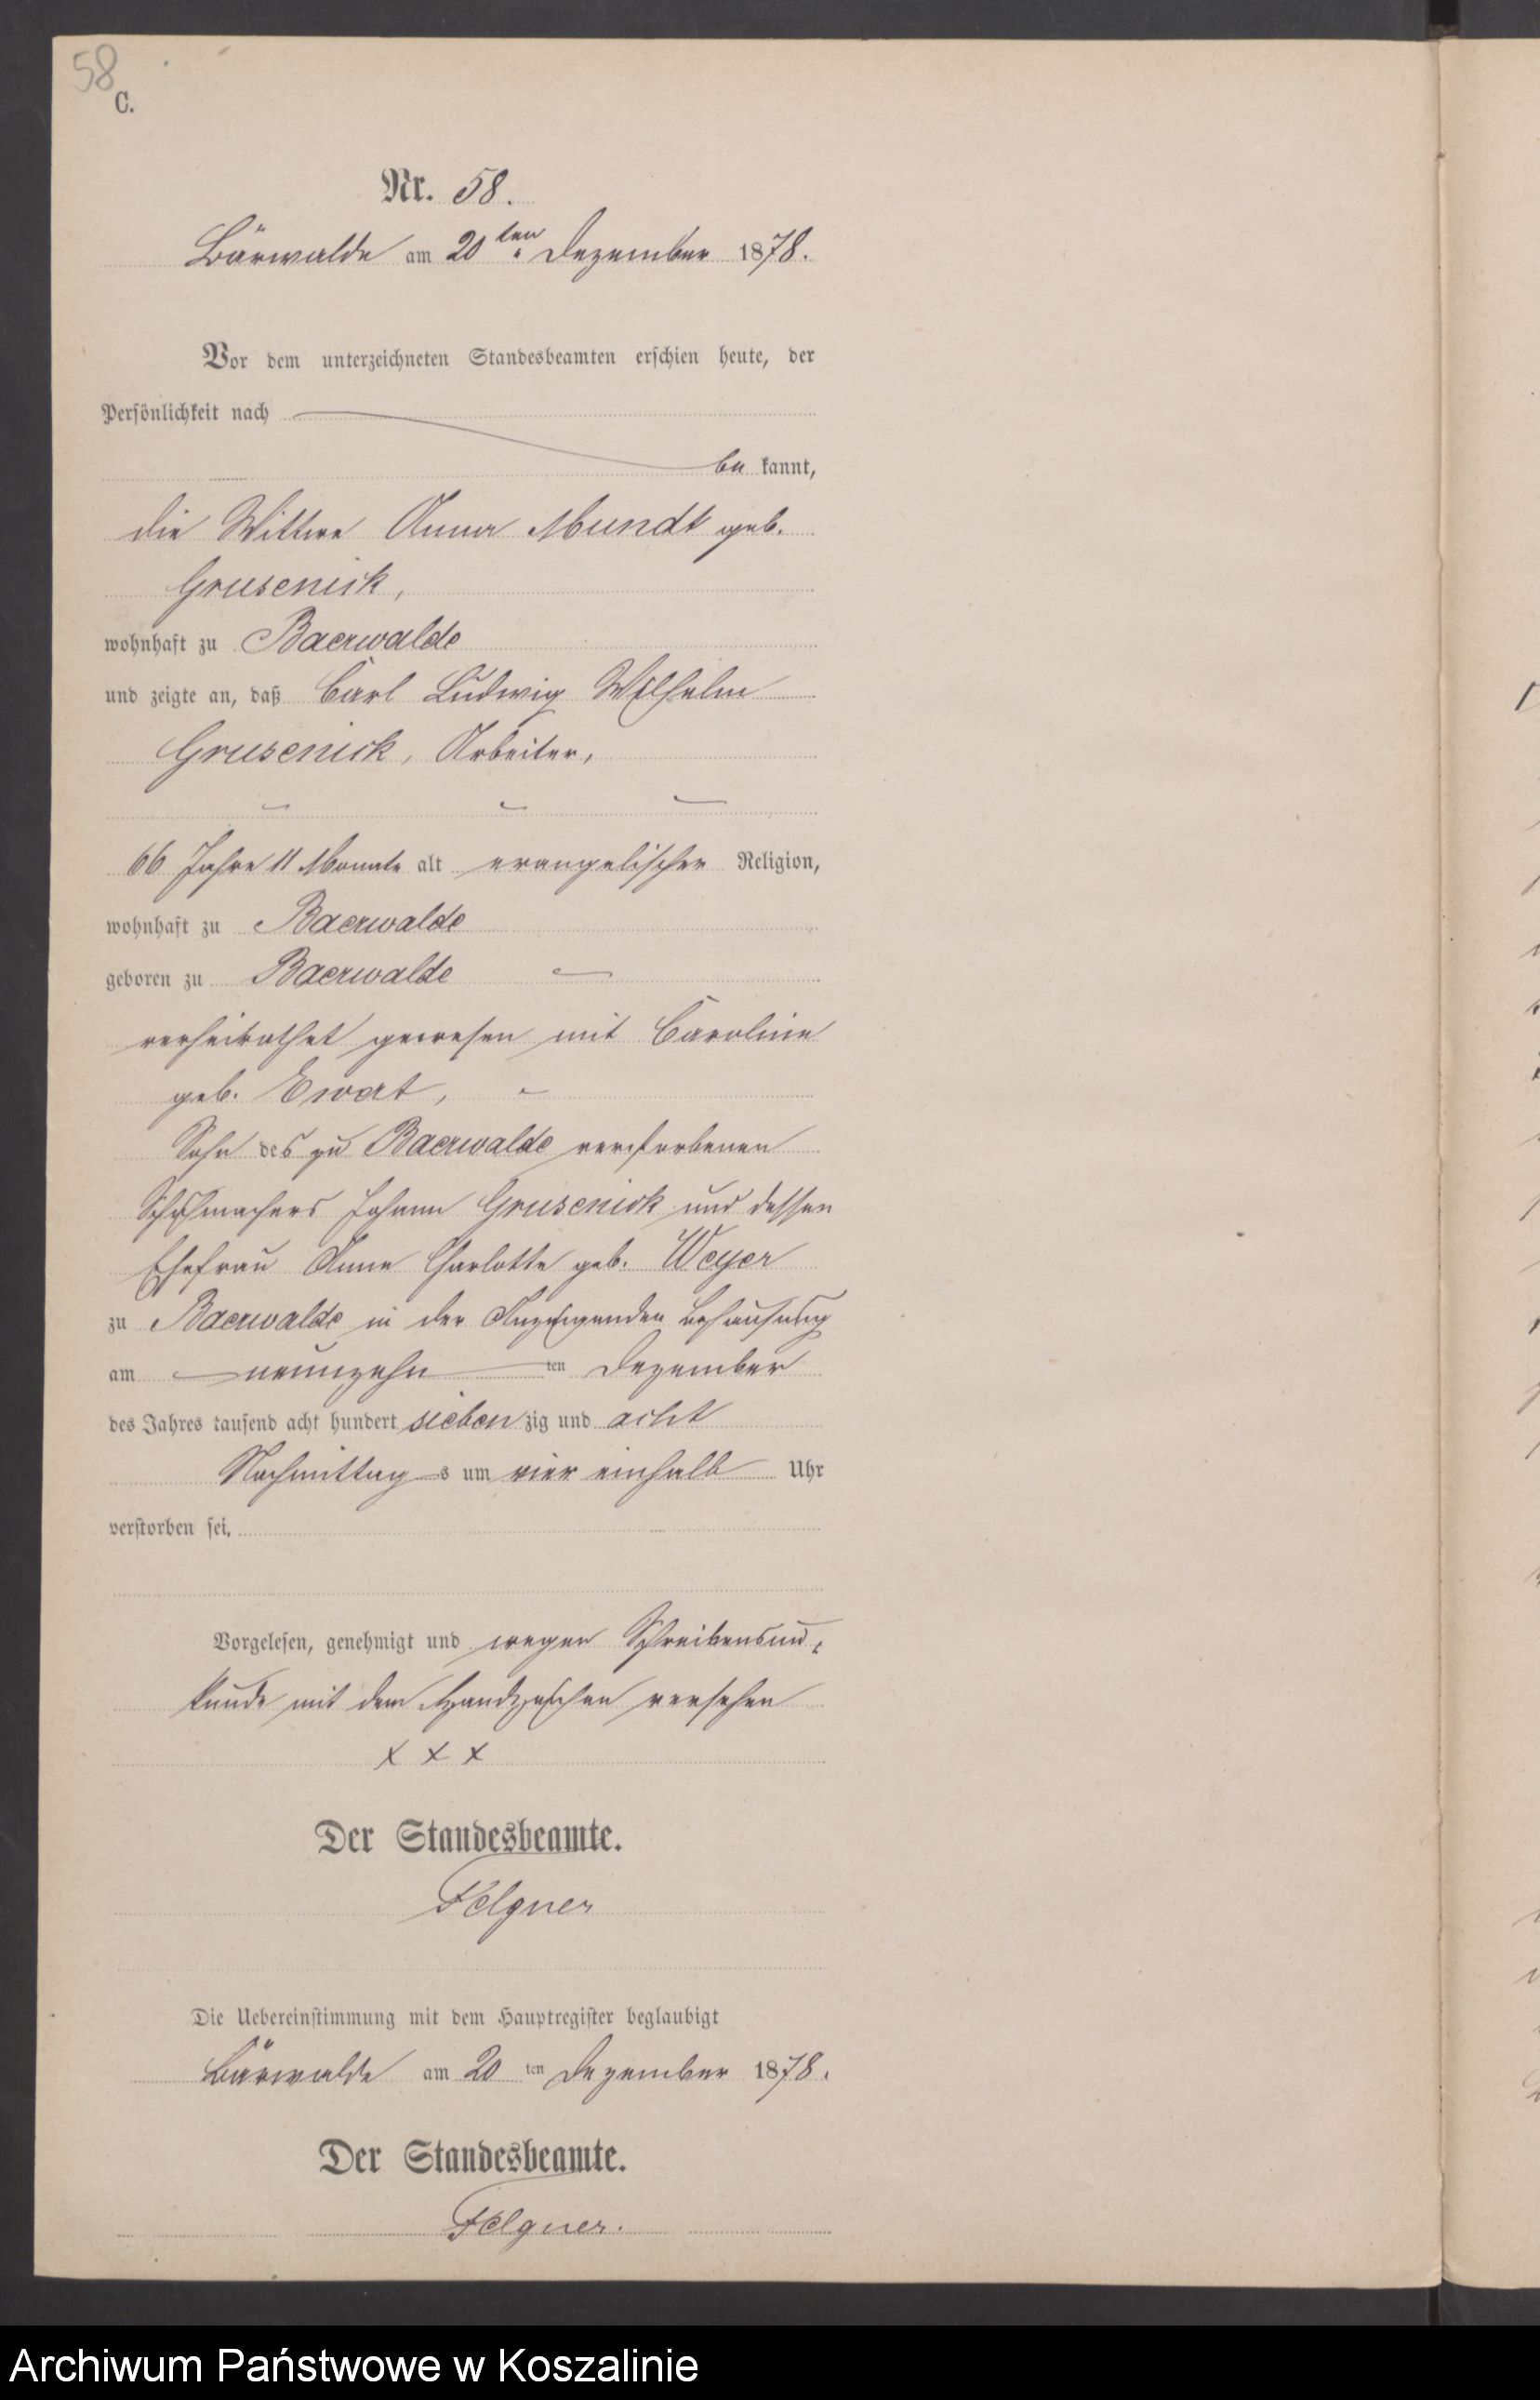 58
C.
Nr. 58.
Bärwalde am 20ten Dezember 1878.
Vor dem unterzeichneten Standesbeamten erschien heute, der
Persönlichkeit nach
be kannt,
die Wittwe Anna Mundt geb.
Grusenick,
wohnhaft zu Baerwalde
und zeigte an, daß Carl Ludwig Wilhelm
Grusenick, Arbeiter,
66 Jahre 11 Monate alt evangelischer Religion,
wohnhaft zu Baerwalde
geboren zu Baerwalde
verheirathet gewesen mit Caroline
geb. Ewert,
Sohn des zu Baerwalde verstorbenen
Schuhmachers Johann Grusenick und dessen
Ehefrau Anne Charlotte geb. Weyer
zu Baerwalde in der Anzeigenden Behausung
am neunzehn ten Dezember
des Jahres tausend acht hundert sieben zig und acht
Nachmittag s um vier einhalb Uhr
verstorben sei.
Vorgelesen, genehmigt und wegen Schreibensun-
kunde mit dem Handzeichen versehen
x x x
Der Standesbeamte.
Felgner
Die Uebereinstimmung mit dem Hauptregister beglaubigt
Bärwalde am 20 ten Dezember 1878.
Der Standesbeamte.
Felgner.
Archiwum Państwowe w Koszalinie